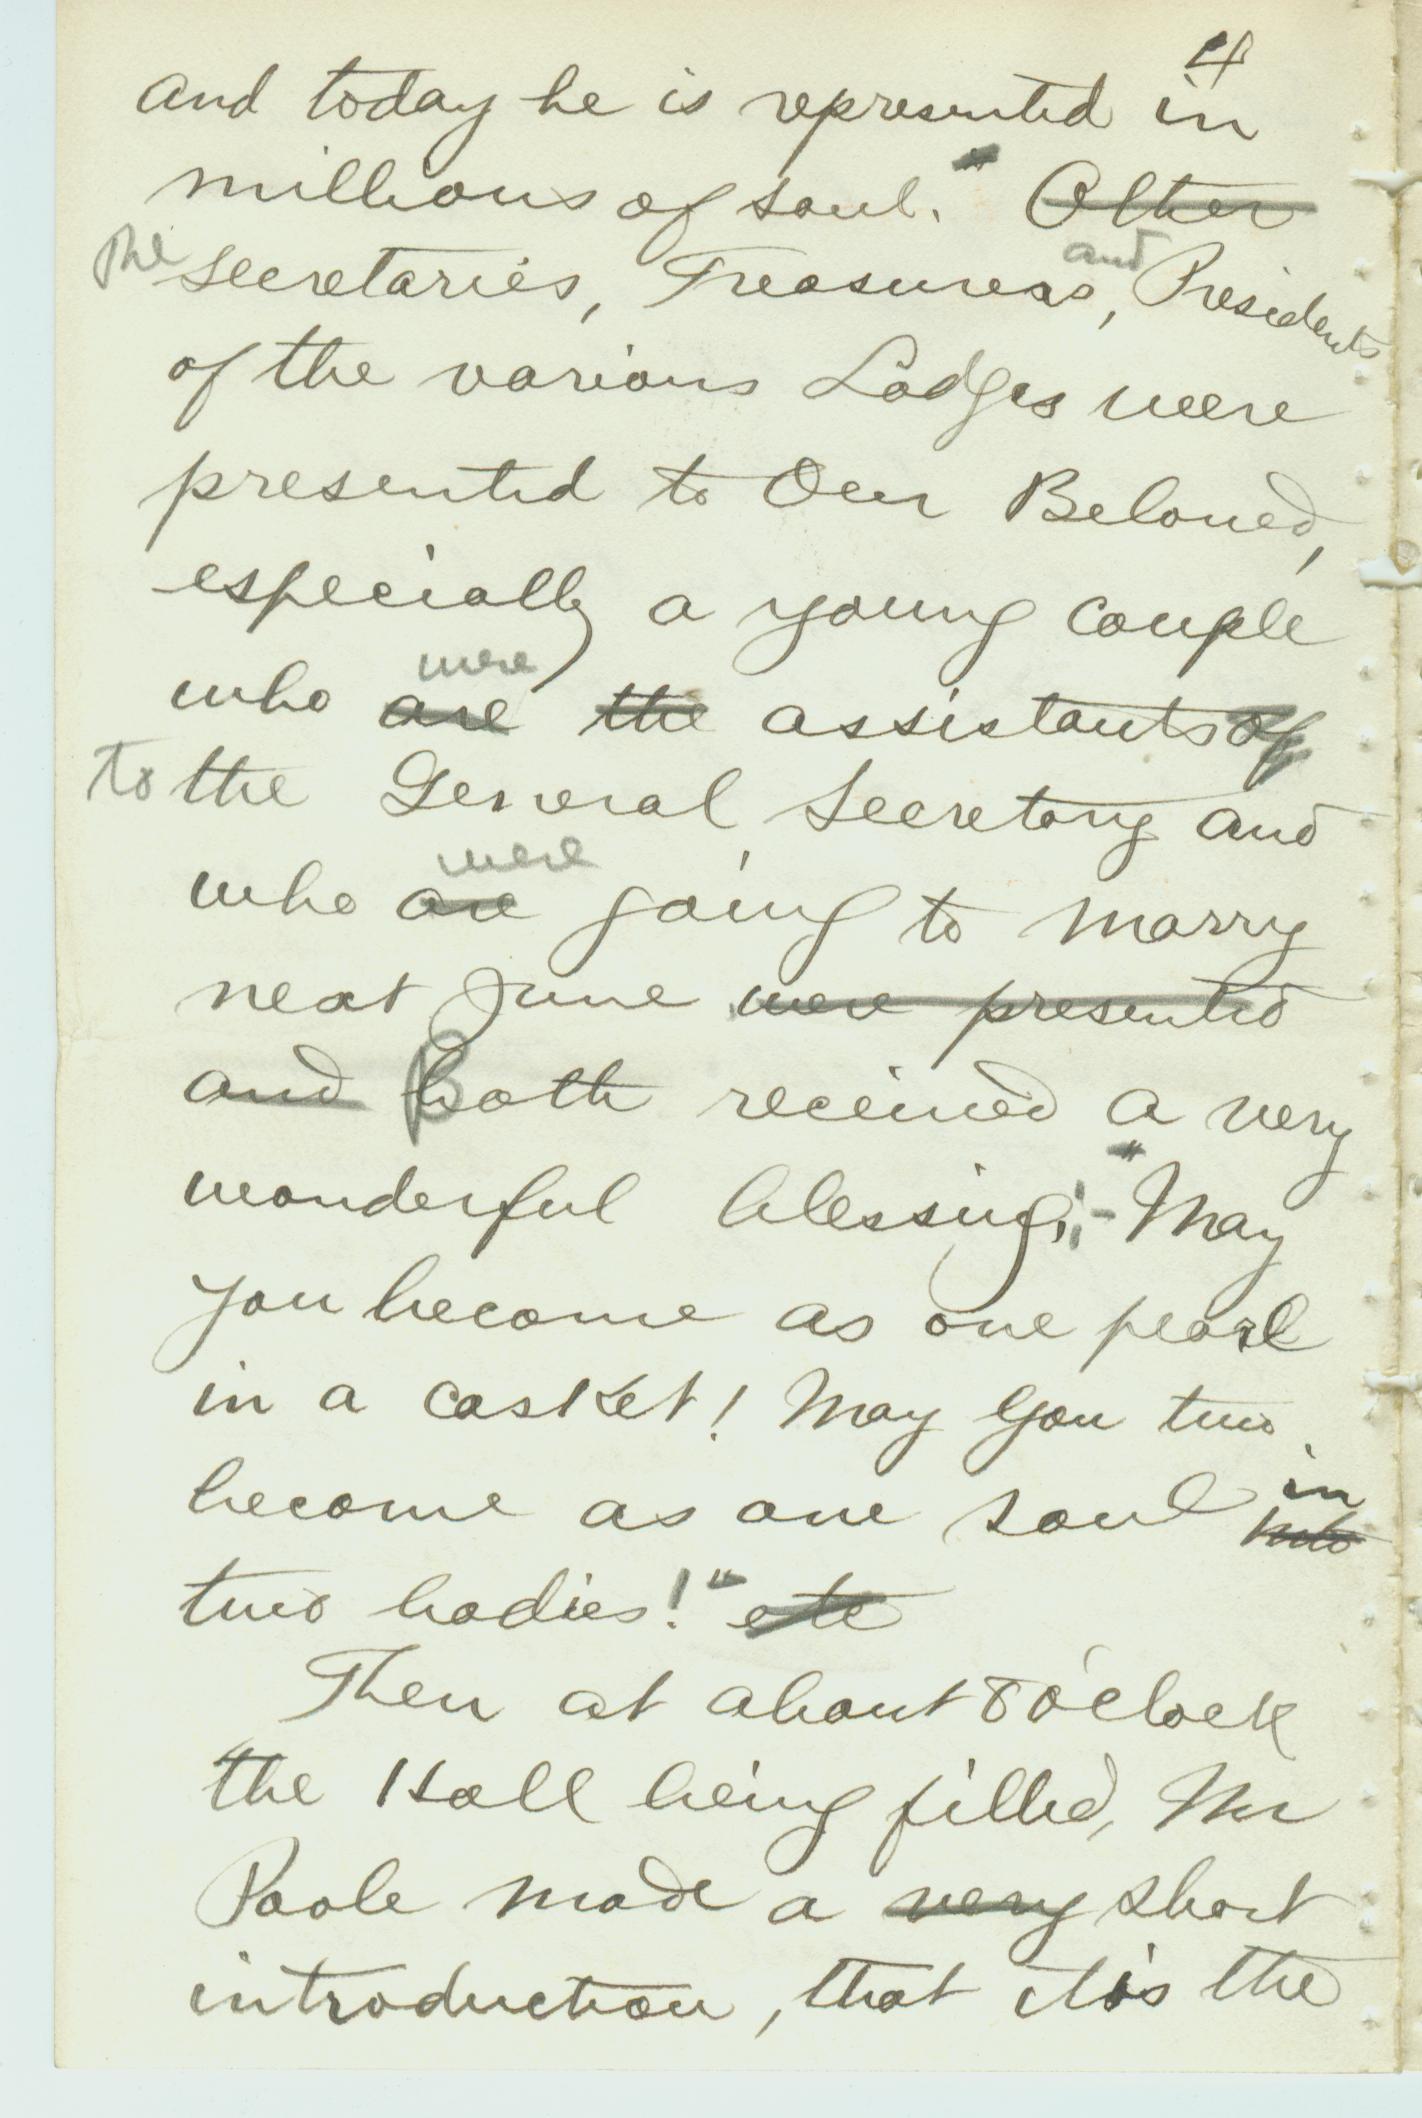 4
and today he is represented in
millions of soul." Other
The secretaries, Treasurers, and Presidents
of the various Lodges were
presented to Our Beloved,
especially a young couple
who are were the assistants of
to the General Secretary and
who are were going to marry
next June were presented
and Both received a very
wonderful blessing:- "May
you become as one pearl
in a casket! May you two
become as one soul into in
two bodies!" etc
Then at about 8 o'clock
the Hall being filled, Mr
Poole made a very short
introduction, that it is the